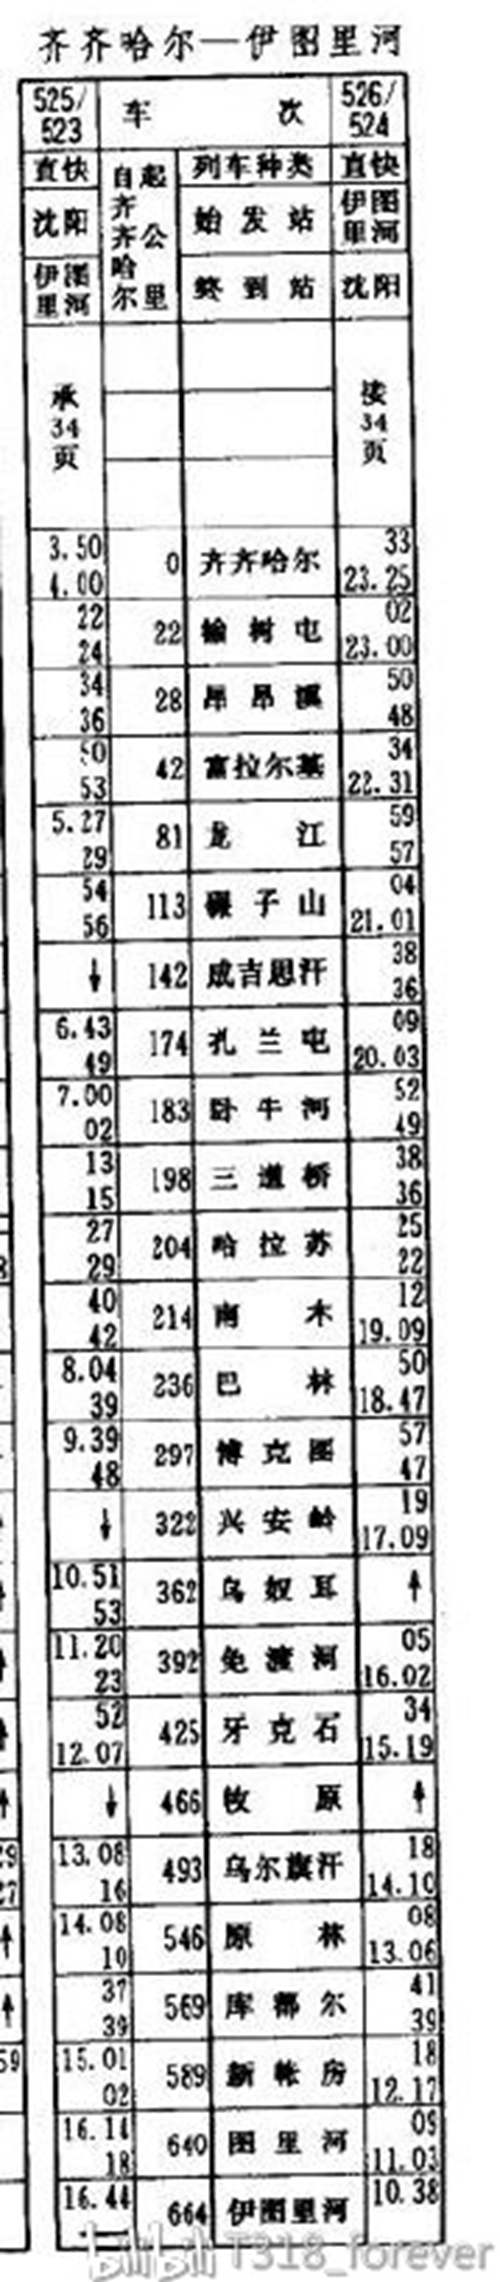 齐齐哈尔—伊图里河
525/523 车次 526/524
直快 自齐齐哈尔起公里 列车种类 直快
沈阳 始发站 伊图里河
伊图里河 终到站 沈阳
承34页 接34页
3.50 33
4.00 0 齐齐哈尔 23.25
22 02
24 22 榆树屯 23.00
34 50
36 28 昂昂溪 48
50 34
53 42 富拉尔基 22.31
5.27 59
29 81 龙江 57
54 04
56 113 碾子山 21.01
↓ 142 成吉思汗 38
36
6.43 09
49 174 扎兰屯 20.03
7.00 52
02 183 卧牛河 49
13 38
15 198 三道桥 36
27 25
29 204 哈拉苏 22
40 12
42 214 南木 19.09
8.04 50
39 236 巴林 18.47
9.39 57
48 297 博克图 47
↓ 322 兴安岭 19
17.09
10.51
53 362 乌奴耳 ↑
11.20 05
23 392 免渡河 16.02
52 34
12.07 425 牙克石 15.19
↓ 466 牧原 ↑
13.08 18
16 493 乌尔旗汗 14.10
14.08 08
10 546 原林 13.06
37 41
39 569 库都尔 39
15.01 18
02 589 新帐房 12.17
16.14 09
18 640 图里河 11.03
16.44 10.38
664 伊图里河
bilibili T318_forever